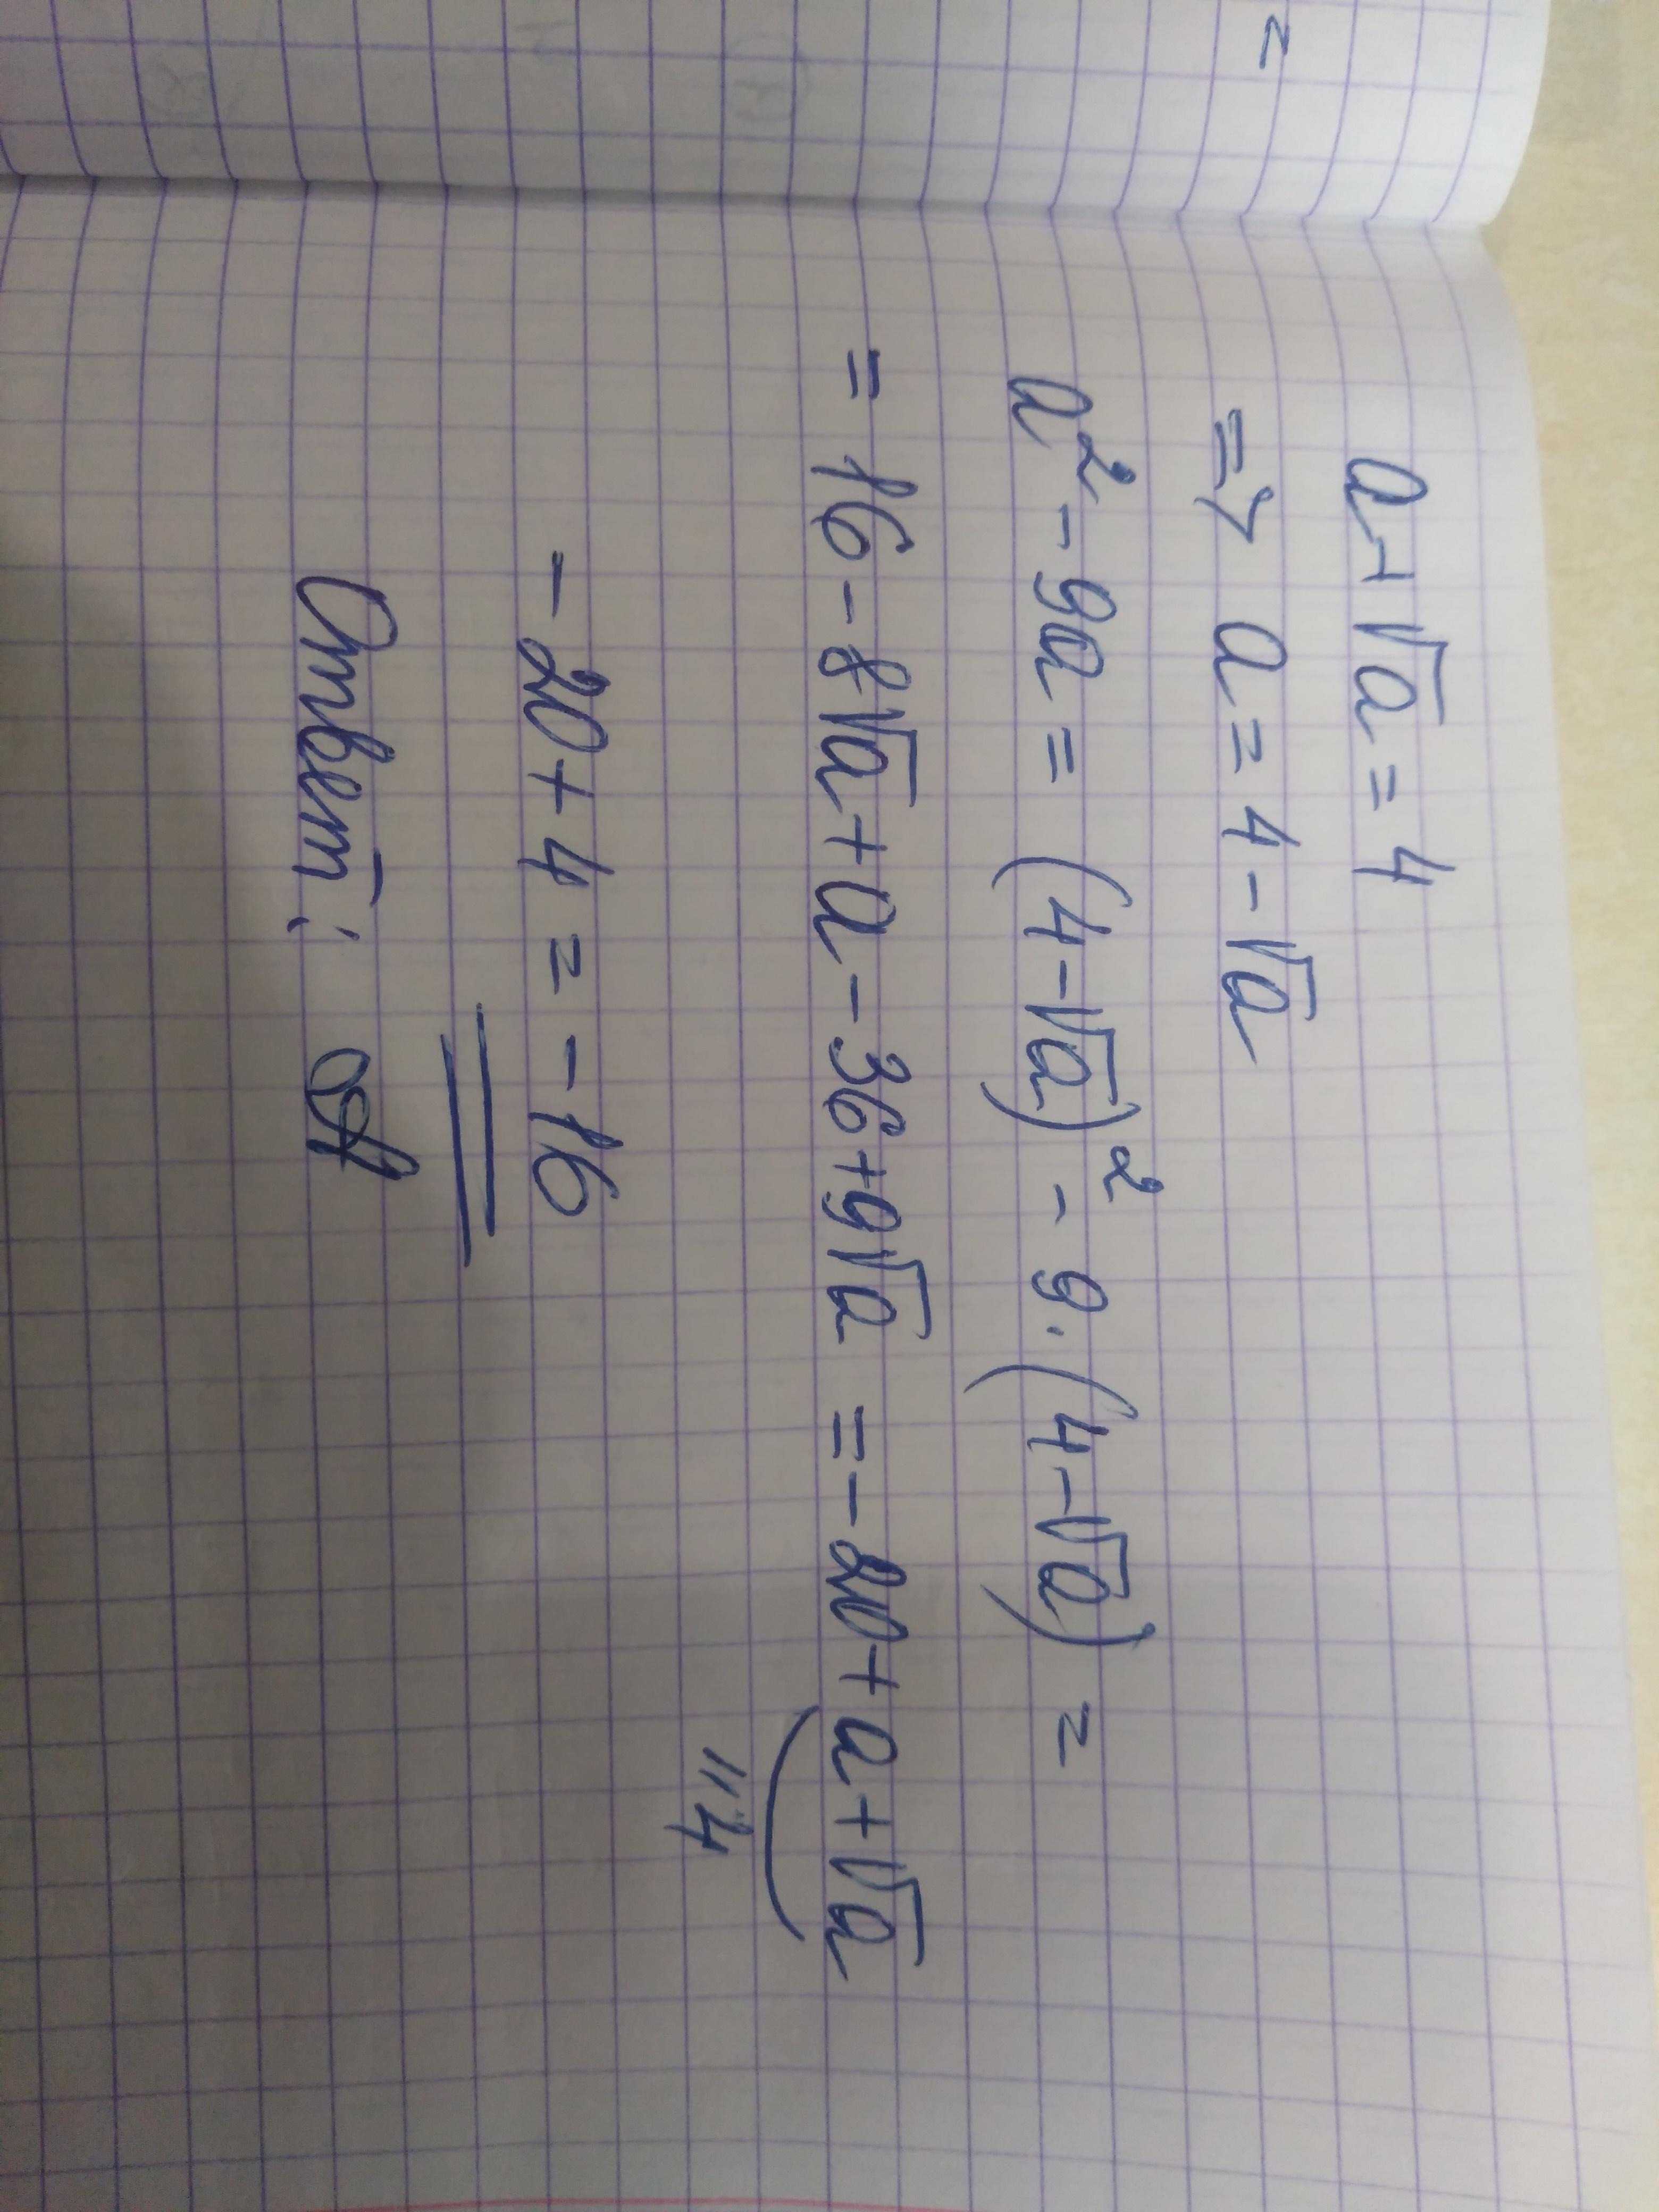 =
a+√a = 4
=> a = 4 - √a
a² - 9a = (4-√a)² - 9·(4-√a) =
= 16 - 8√a + a - 36 + 9√a = - 20 + a + √a
"4
- 20 + 4 = - 16
Ответ: